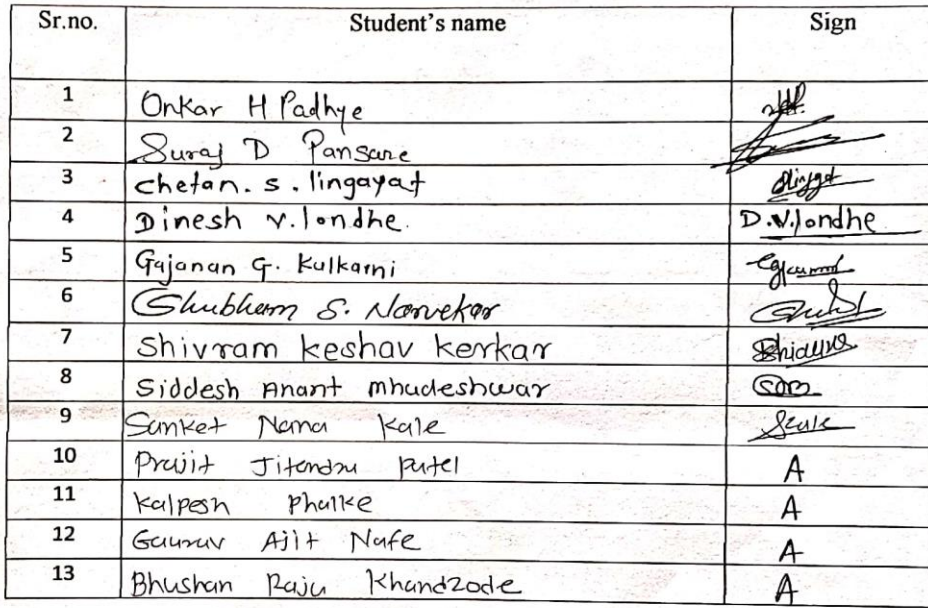 Sr.no. Student's name Sign
1 Onkar H Padhye
2 Suraj D Pansare
3 chetan. s. lingayat
4 Dinesh v. londhe. D.V.londhe
5 Gajanan G. Kulkarni
6 Shubham S. Narvekar
7 Shivram keshav kerkar
8 Siddesh Anant mhudeshwar
9 Sanket Nama Kale
10 Jitendra Patel A
11 Kalpesh Phalke A
12 Gaurav Ajit Nafe A
13 Bhushan Raju Khandzode A